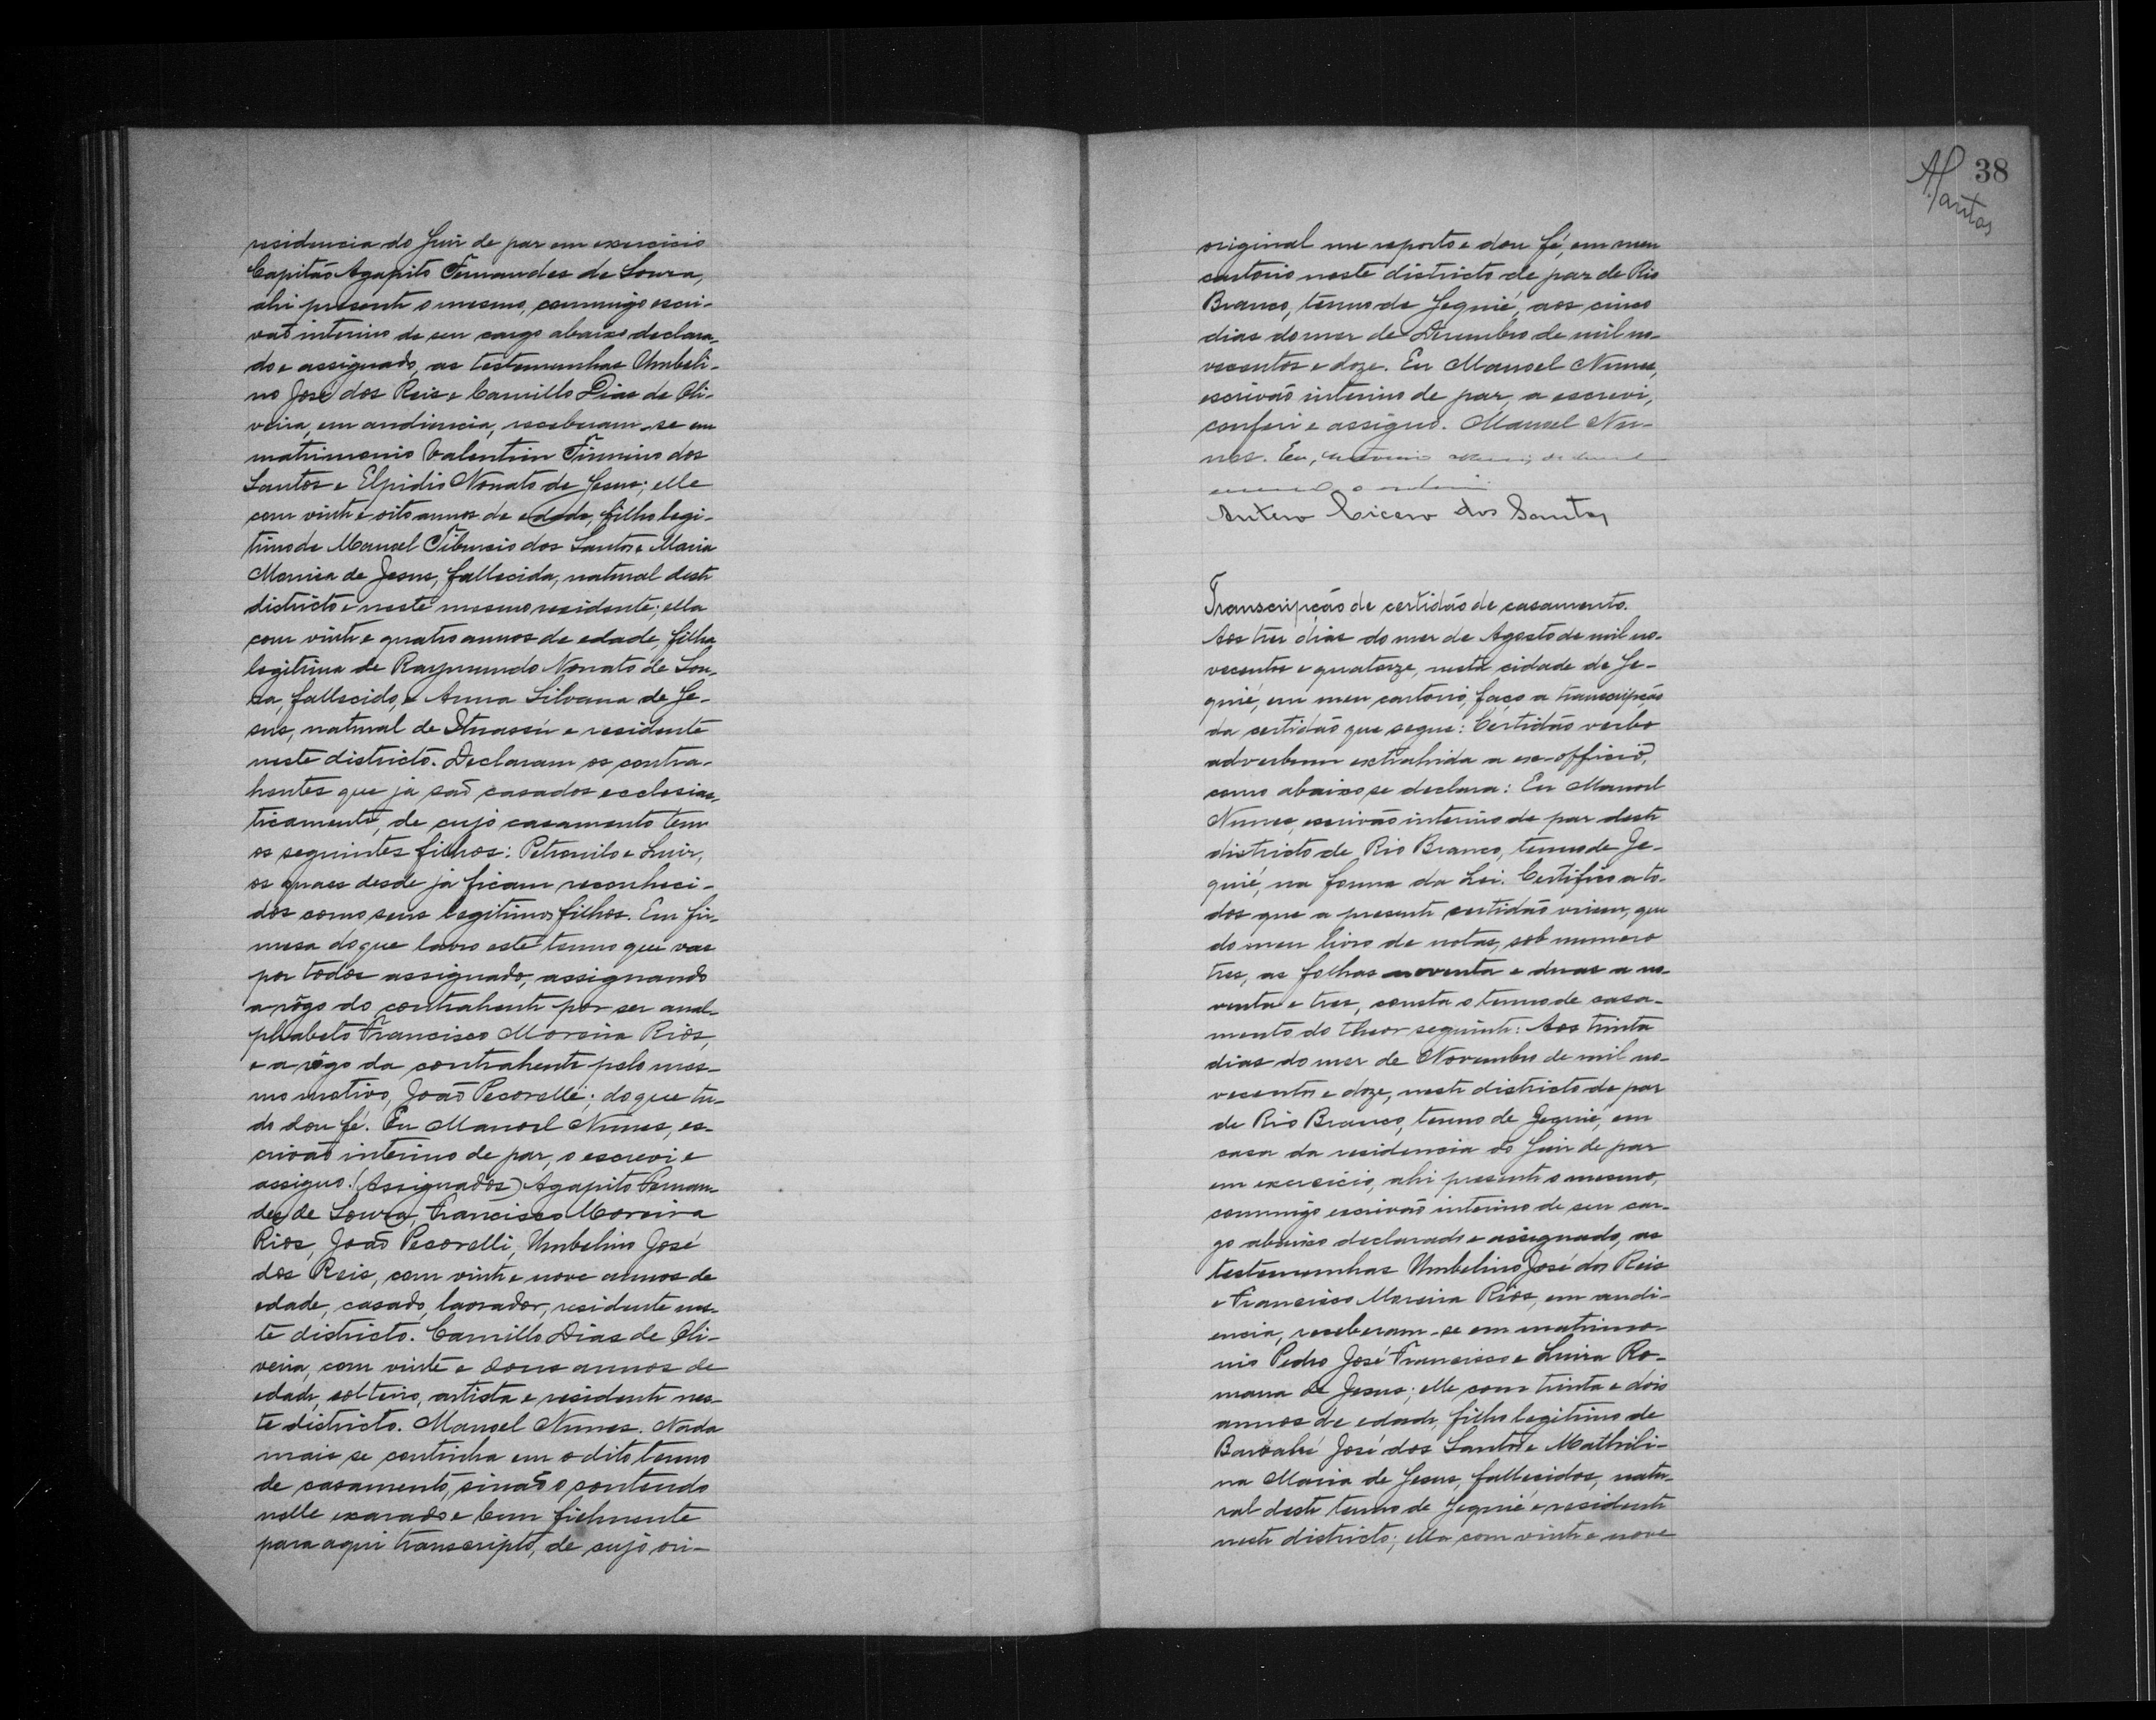 residencia do Juiz de paz em exercicio
Capitão Agapito Fernandes de Souza,
ahi presente o mesmo, commigo escri-
vão interino de seu cargo abaixo declara-
do e assignado, as testemunhas Umbeli-
no José dos Reis e Camillo Dias de Oli-
veira, em audiencia, receberam-se em
matrimonio Valentim Firmino dos
Santos e Elpidia Nonato de Jesus; elle
com vinte e oito annos de edade, filho legi-
timo de Manoel Tiburcio dos Santos e Maria
Monica de Jesus, fallecida, natural deste
districto e neste mesmo residente; ella
com vinte e quatro annos de edade, filha
legitima de Raymundo Nonato de Sou-
za, fallecido, e Anna Silvana de Je-
sus, natural de Ituassú e residente
neste districto. Declaram os contra-
hentes que já são casados ecclesias-
ticamente, de cujo casamento têm
os seguintes filhos: Petronilo e Luiz,
os quaes desde já ficam reconheci-
dos como seus legitimos filhos. Em fir-
mesa do que lavro este termo que vae
por todos assignado, assignando
a rôgo do contrahente por ser anal-
phabeto Francisco Moreira Rios,
e a rôgo da contrahente pelo mes-
mo motivo, João Pecorelli; do que tu-
do dou fé. Eu Manoel Nunes, es-
crivão interino de paz, o escrevi e
assigno. (Assignados) Agapito Fernan
des de Souza, Francisco Moreira
Rios, João Pecorelli, Umbelino José
dos Reis, com vinte e nove annos de
edade, casado, lavrador, residente nes-
te districto. Camillo Dias de Oli-
veira, com vinte e dous annos de
edade, solteiro, artista e residente nes-
te districto. Manoel Nunes. Nada
mais se continha em o dito termo
de casamento, sinão o contendo
nelle exarado e bem fielmente
para aqui transcripto, de cujo ori-
38
ASantos
original me reporto e dou fé, em meu
cartorio neste districto de paz de Rio
Branco, termo de Jequié, aos cinco
dias do mez de Dezembro de mil no-
vecentos e doze. Eu Manoel Nunes,
escrivão interino de paz, a escrevi,
conferi e assigno. Manoel Nu-
nes. Eu,
Antero Cicero dos Santos
Transcripção de certidão de casamento.
Aos tres dias do mez de Agosto de mil no-
vecentos e quatorze, nesta cidade de Je-
quié, em meu cartorio, faço a transcripção
da certidão que segue: Certidão verbo
adverbum extrahida a ex-officio,
como abaixo se declara: Eu Manoel
Nunes, escrivão interino de paz deste
districto de Rio Branco, termo de Je-
quié, na forma da Lei. Certifico a to-
dos que a presente certidão virem, que
do meu livro de notas, sob numero
tres, as folhas noventa e duas a no-
venta e tres, consta o termo de casa-
mento do theor seguinte: Aos trinta
dias do mez de Novembro de mil no-
vecentos e doze, neste districto de paz
de Rio Branco, termo de Jequié, em
casa da residencia do Juiz de paz
em exercicio, ahi presente o mesmo,
commigo escrivão interino de seu car-
go abaixo declarado e assignado, as
testemunhas Umbelino José dos Reis
e Francisco Moreira Rios, em audi-
encia, receberam-se em matrimo-
nio Pedro José Francisco e Luiza Ro-
mana de Jesus; elle com trinta e dois
annos de edade, filho legitimo de
Barnabé José dos Santos e Mathili-
na Maria de Jesus, fallecidos, natu-
ral deste termo de Jequié e residente
neste districto; ella com vinte e nove